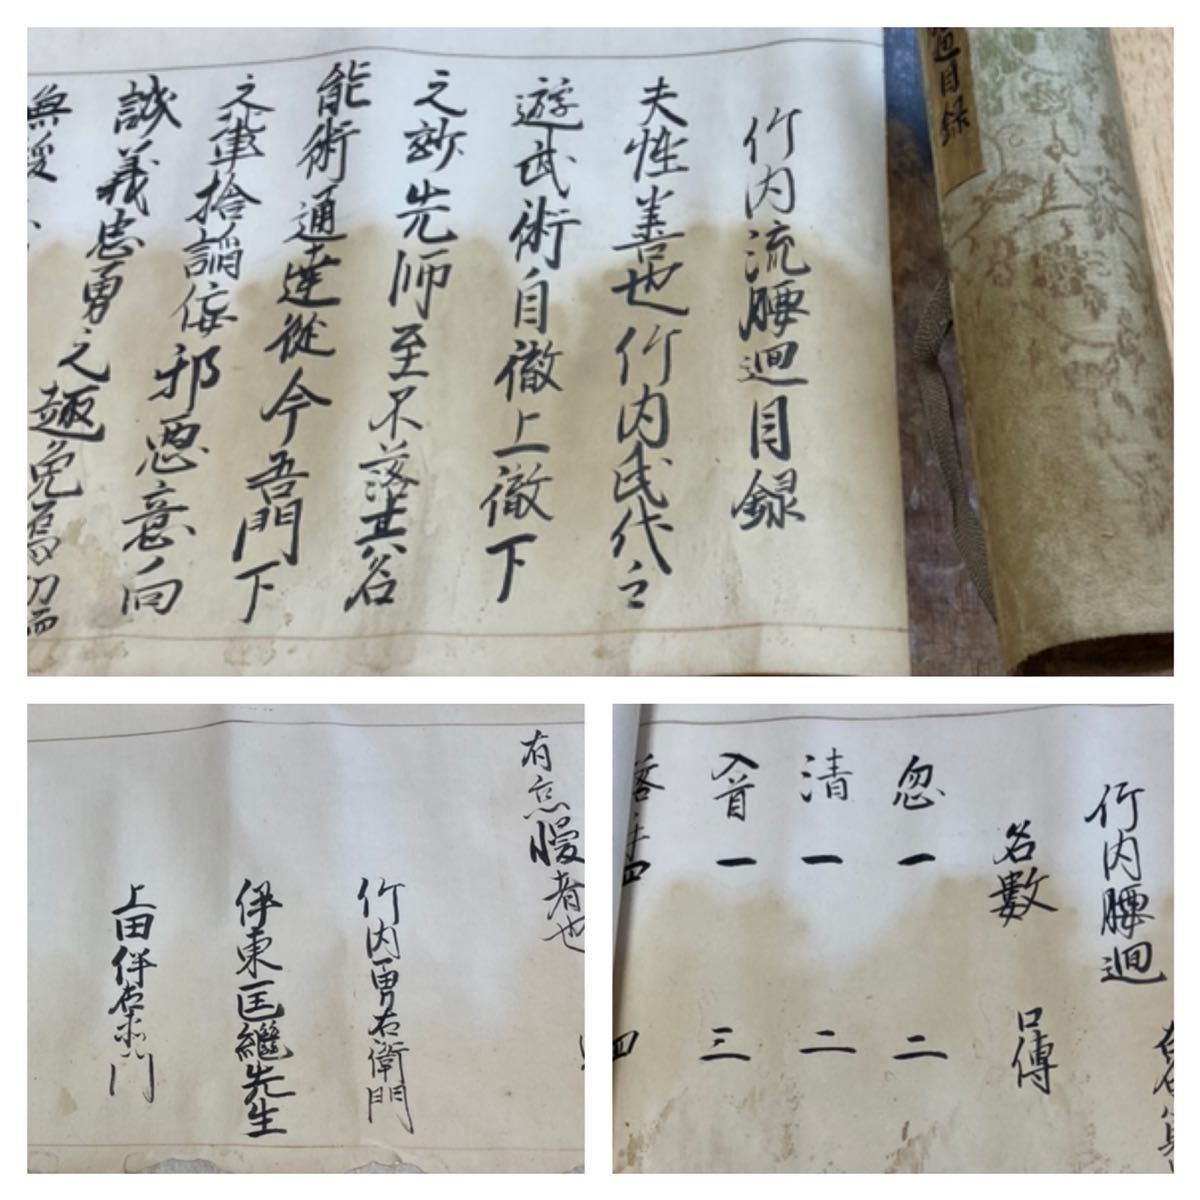 廻目録
竹内流腰廻目録
夫性善也竹内氏代之
遊武術自徹上徹下
之妙先师至不落其名
能術通達従今吾門下
之輩拾謟侫邪悪意向
誠義忠勇之趣免
無
有怠慢者也
竹内勇右衛門
伊東匡継先生
上田伴右衛門
竹内腰廻
名數 口傳
忽 一 二
清 一 二
入首 一 三
落 四 四